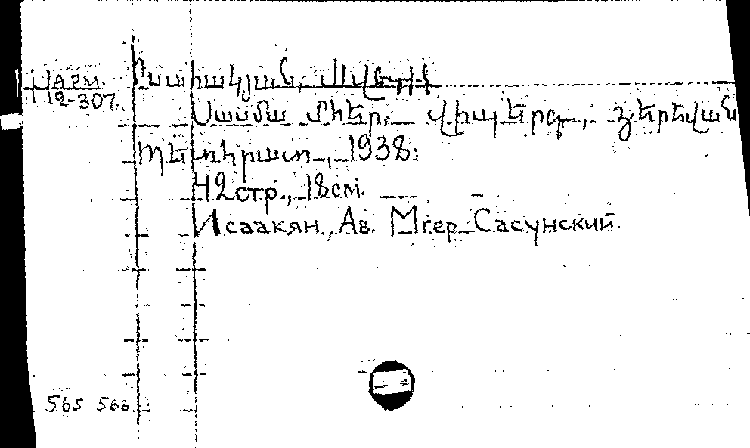 Арм.
12-307
Իսահակյան, Ավետիք
Սասմա Մհեր. Վիպերգ. Երեվան
Պետհրատ, 1938.
42 стр., 18 см.
Исаакян, Ав. Мгер Сасунский.
565 566